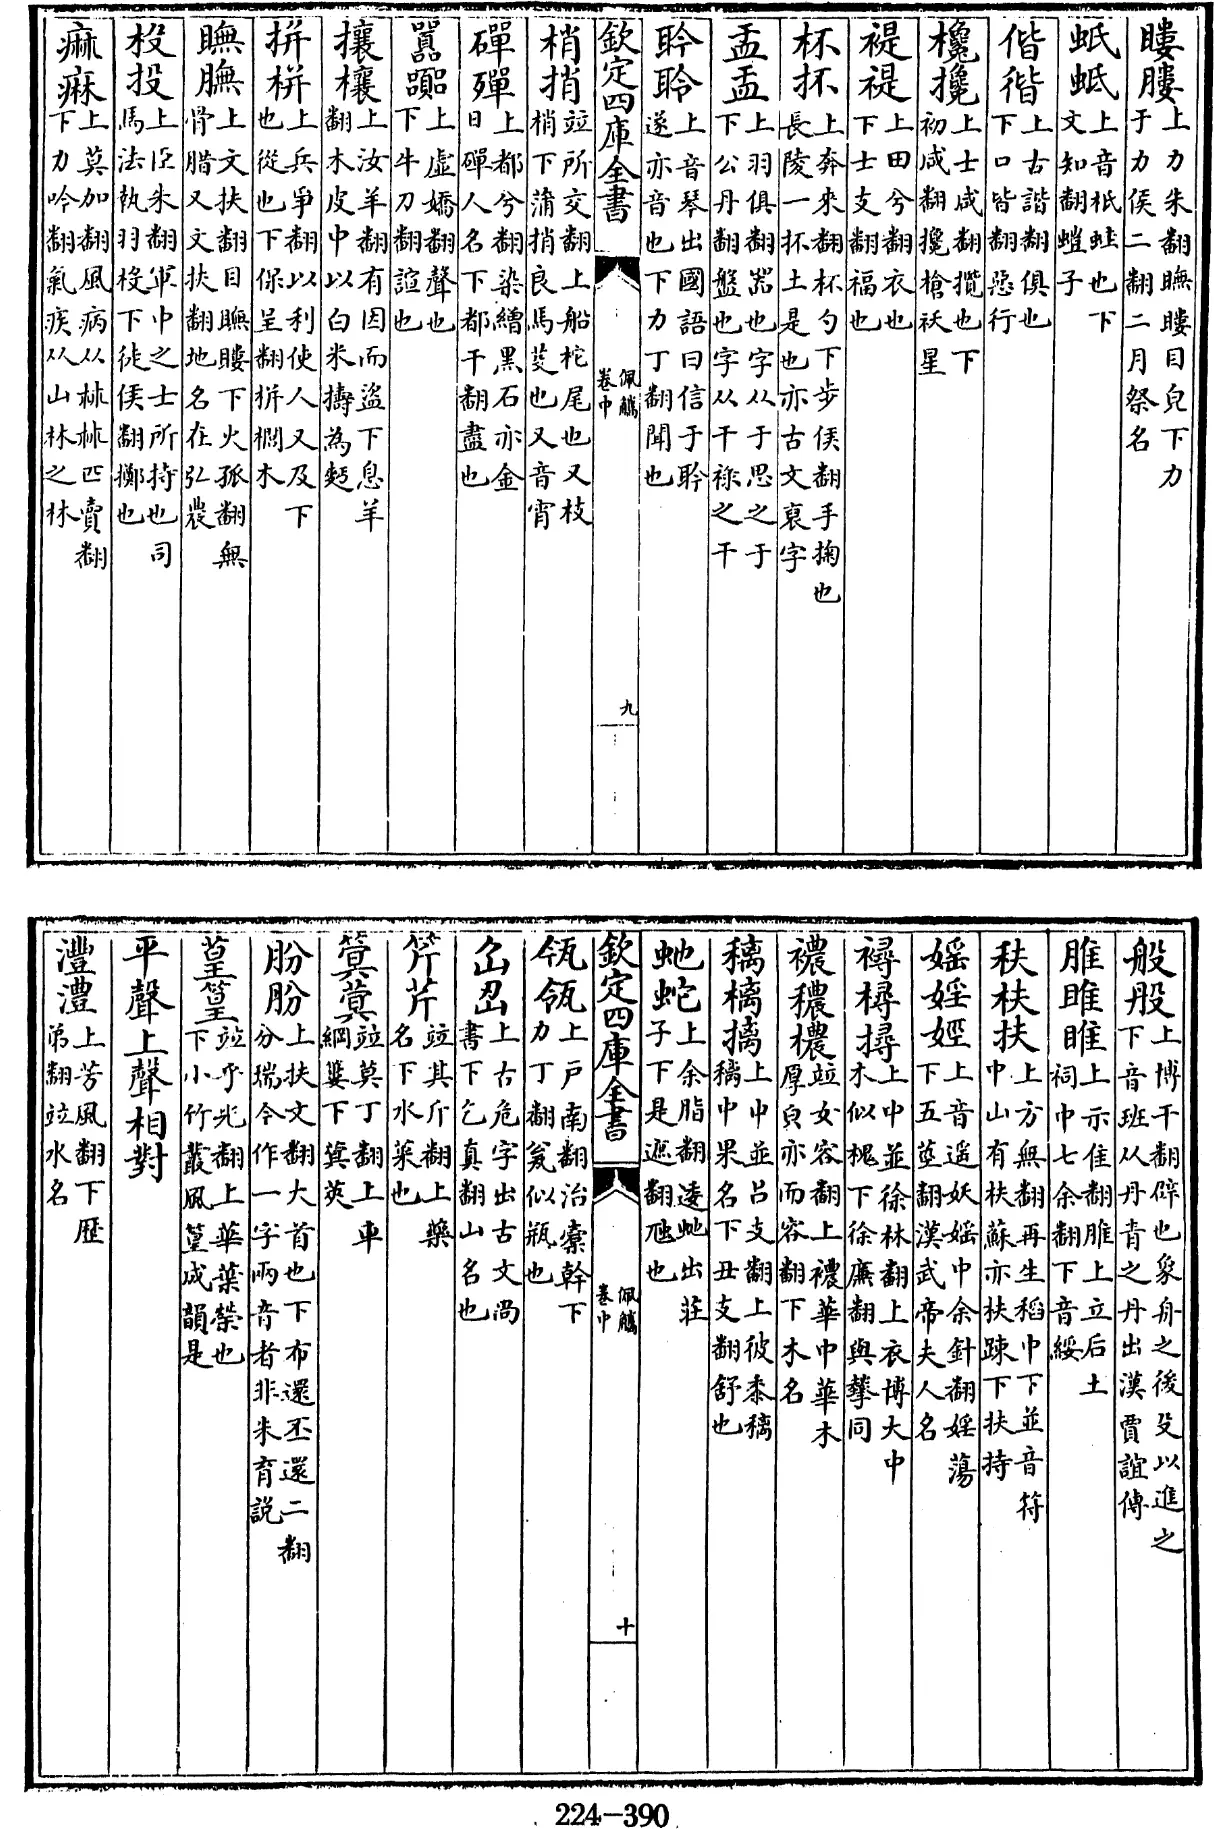 瞜膢上力朱翻瞴瞜目皃下力
于力侯二翻二月祭名
蚔蚳上音祇蛙也下
文知翻螘子
偕徣上古諧翻俱也
下口皆翻惡行
欃攙上士咸翻攬也下
初咸翻攙槍祅星
褆禔上田兮翻衣也
下士支翻福也
杯抔上奔來翻杯勺下步侯翻手掬也
長陵一抔土是也亦古文裒字
盂盂上羽俱翻器也字从于思之于
下公丹翻盤也字从干祿之干
聆聆上音琴出國語曰信于聆
遂亦音也下力丁翻聞也
欽定四庫全書
佩觿
卷中
九
梢捎竝所交翻上船柁尾也又枝
梢下蒲捎良馬茇也又音宵
磾殫上都兮翻染繒黑石亦金
日磾人名下都干翻盡也
嚚嚻上虛嬌翻聲也
下牛刀翻諠也
攘欀上汝羊翻有因而盜下息羊
翻木皮中以白米擣為麫
拼栟上兵爭翻以利使人又及下
也從也下保呈翻栟櫚木
瞴膴上文扶翻目瞴瞜下火孤翻無
骨腊又文扶翻地名在弘農
杸投上臣朱翻軍中之士所持也司
馬法執羽杸下徒侯翻擲也
痲痳上莫加翻風病从𣏟𣏟匹賣翻
下力吟翻氣疾从山林之林
般股上博干翻辟也象舟之後殳以進之
下音班从丹青之丹出漢賈誼傳
脽雎睢上示隹翻脽上立后土
祠中七余翻下音綏
秩枎扶上方無翻再生稻中下並音符
中山有枎蘇亦枎疎下扶持
媱婬娙上音遥妖媱中余針翻婬蕩
下五莖翻漢武帝夫人名
襑樳撏上中並徐林翻上衣博大中
木似槐下徐廉翻與㩒同
襛穠檂竝女容翻上襛華中華木
厚皃亦而容翻下木名
穲樆摛上中並呂支翻上彼黍穲
穲中果名下丑支翻舒也
虵蛇上余脂翻逶虵出莊
子下是遮翻虺也
欽定四庫全書
佩觿
卷中
十
瓴瓴上戶南翻治橐幹下
力丁翻瓮似瓶也
㕒岊上古危字出古文尚
書下乞真翻山名也
䇹芹竝其斤翻上藥
名下水菜也
簊蓂竝莫丁翻上車
網簍下蓂莢
肦朌上扶文翻大首也下布還丕還二翻
分瑞今作一字兩音者非朱育説
葟篁竝乎光翻上華葉榮也
下小竹叢風篁成韻是
平聲上聲相對
灃澧上芳風翻下歷
弟翻竝水名
224-390